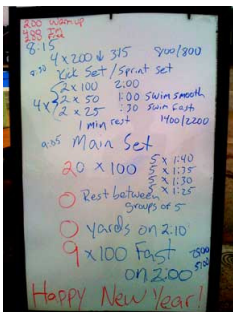 200 Warm up
8:15
4 x 200 ↓ 315 800/800
Kick Set / Sprint set
2 x 100 2:00
4x 2 x 50 1:00 Swim smooth
2 x 25 :30 Swim Fast
1 min rest 1400/2200
Main Set
20 x 100 5 x 1:40
5 x 1:35
5 x 1:30
5 x 1:25
0 Rest between
groups of 5
0 yards on 2:10
9 x 100 Fast
on 2:00
Happy New Year!